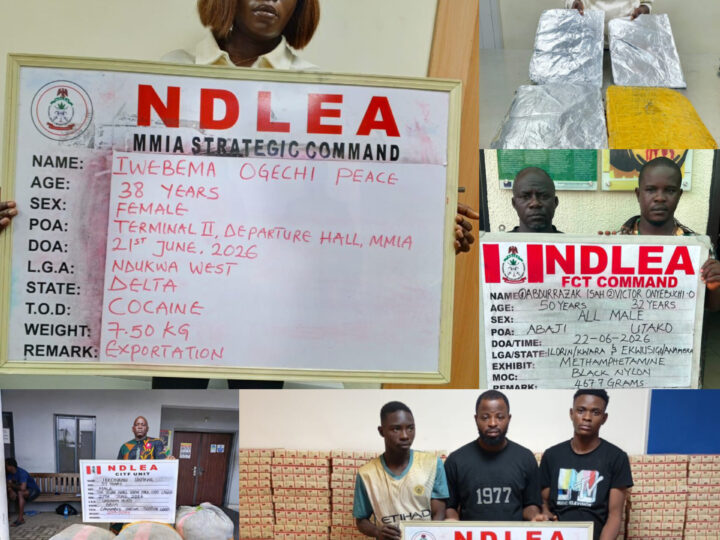 NDLEA
MMIA STRATEGIC COMMAND
NAME: IWEBEMA OGECHI PEACE
AGE: 38 YEARS
SEX: FEMALE
POA: TERMINAL II, DEPARTURE HALL, MMIA
DOA: 21ST JUNE, 2026
L.G.A: NDUKWA WEST
STATE: DELTA
T.O.D: COCAINE
WEIGHT: 7.50 KG
REMARK: EXPORTATION
NDLEA
FCT COMMAND
NAME: ①ABDURRAZAK ISAH ②VICTOR ONYEBUCHI O
AGE: 50 YEARS 32 YEARS
SEX: ALL MALE
POA: ABAJI UTAKO
DOA/TIME: 22-06-2026
LGA/STATE: ILORIN/KWARA & EKWUSIGN/ANAMBRA
EXHIBIT: METHAMPHETAMINE
MOC: BLACK NYLON
REMARK: 467.7 GRAMS
NDLEA
CITF UNIT
MALE
ETIHAD
1977
NDLEA